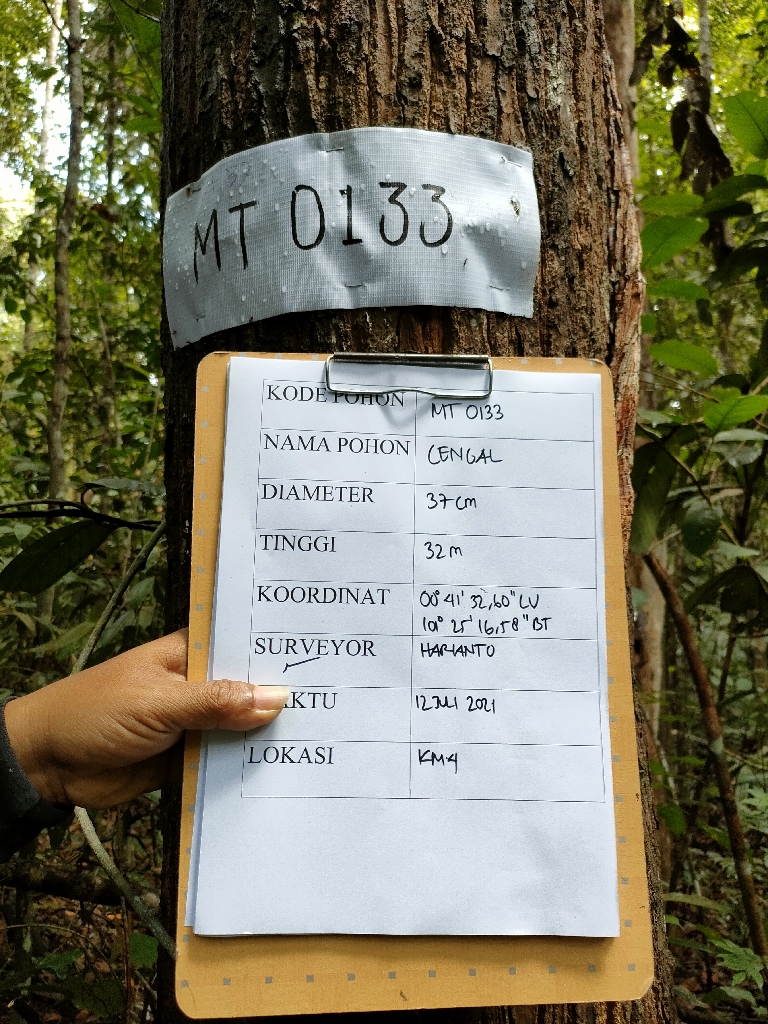 MT 0133
KODE POHON MT 0133
NAMA POHON CENGAL
DIAMETER 37 cm
TINGGI 32 m
KOORDINAT 00° 41' 32,60" LU
101° 25' 16,58" BT
SURVEYOR HARIANTO
AKTU 12 JULI 2021
LOKASI KM 4